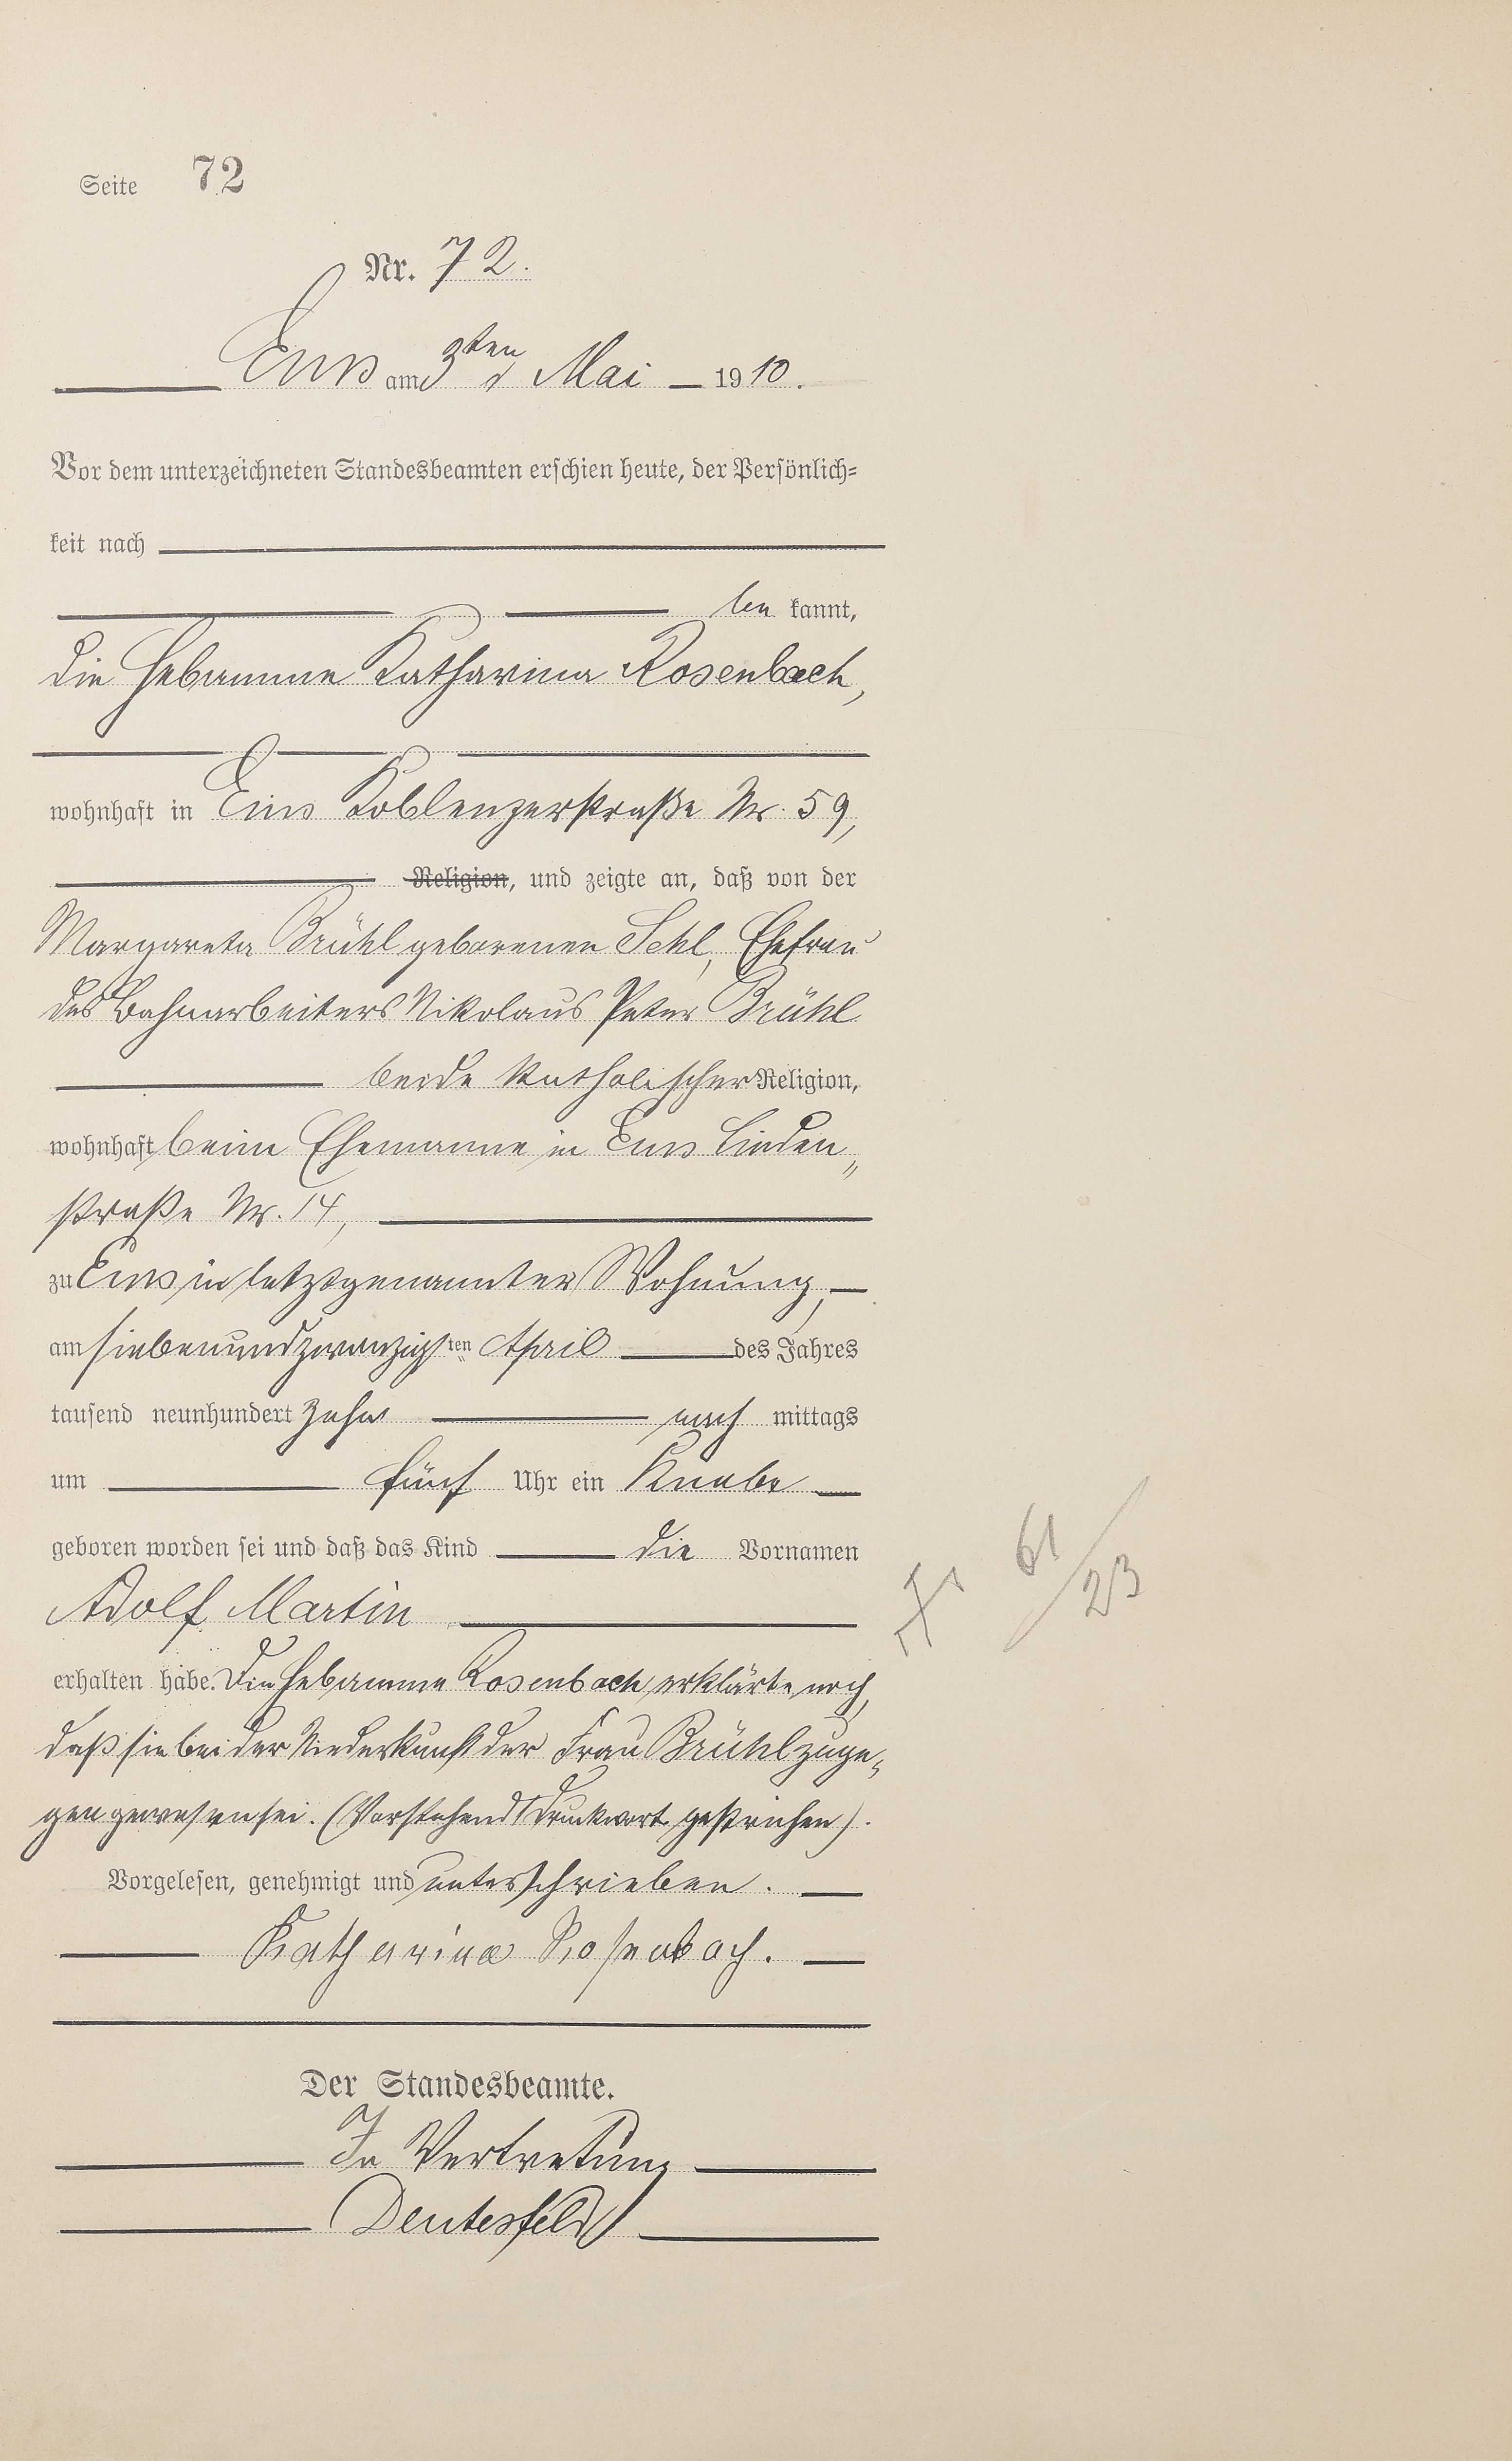 Seite 72
Nr. 72.
Ems am 3ten Mai 1910.
Vor dem unterzeichneten Standesbeamten erschien heute, der Persönlich-
keit nach
be kannt,
die Hebamme Katharina Rosenbach,
wohnhaft in Ems Koblenzerstraße Nr. 59,
Religion, und zeigte an, daß von der
Margareta Brühl geborenen Sehl, Ehefrau
des Bahnarbeiters Nikolaus Peter Brühl
beide katholischer Religion,
wohnhaft beim Ehemanne in Ems Linden„
straße Nr. 14,
zu Ems in letztgenannter Wohnung,
am siebenundzwanzigsten April des Jahres
tausend neunhundert zehn nach mittags
um fünf Uhr ein Knabe
geboren worden sei und daß das Kind die Vornamen
Adolf Martin
erhalten habe. Die Hebamme Rosenbach erklärte noch,
daß sie bei der Niederkunft der Frau Brühl zuge„
gen gewesen sei. (Vorstehend 1 Druckwort gestrichen).
Vorgelesen, genehmigt und unterschrieben.
Katharina Rosenbach.
Der Standesbeamte.
In Vertretung
Deutesfeld
61/23